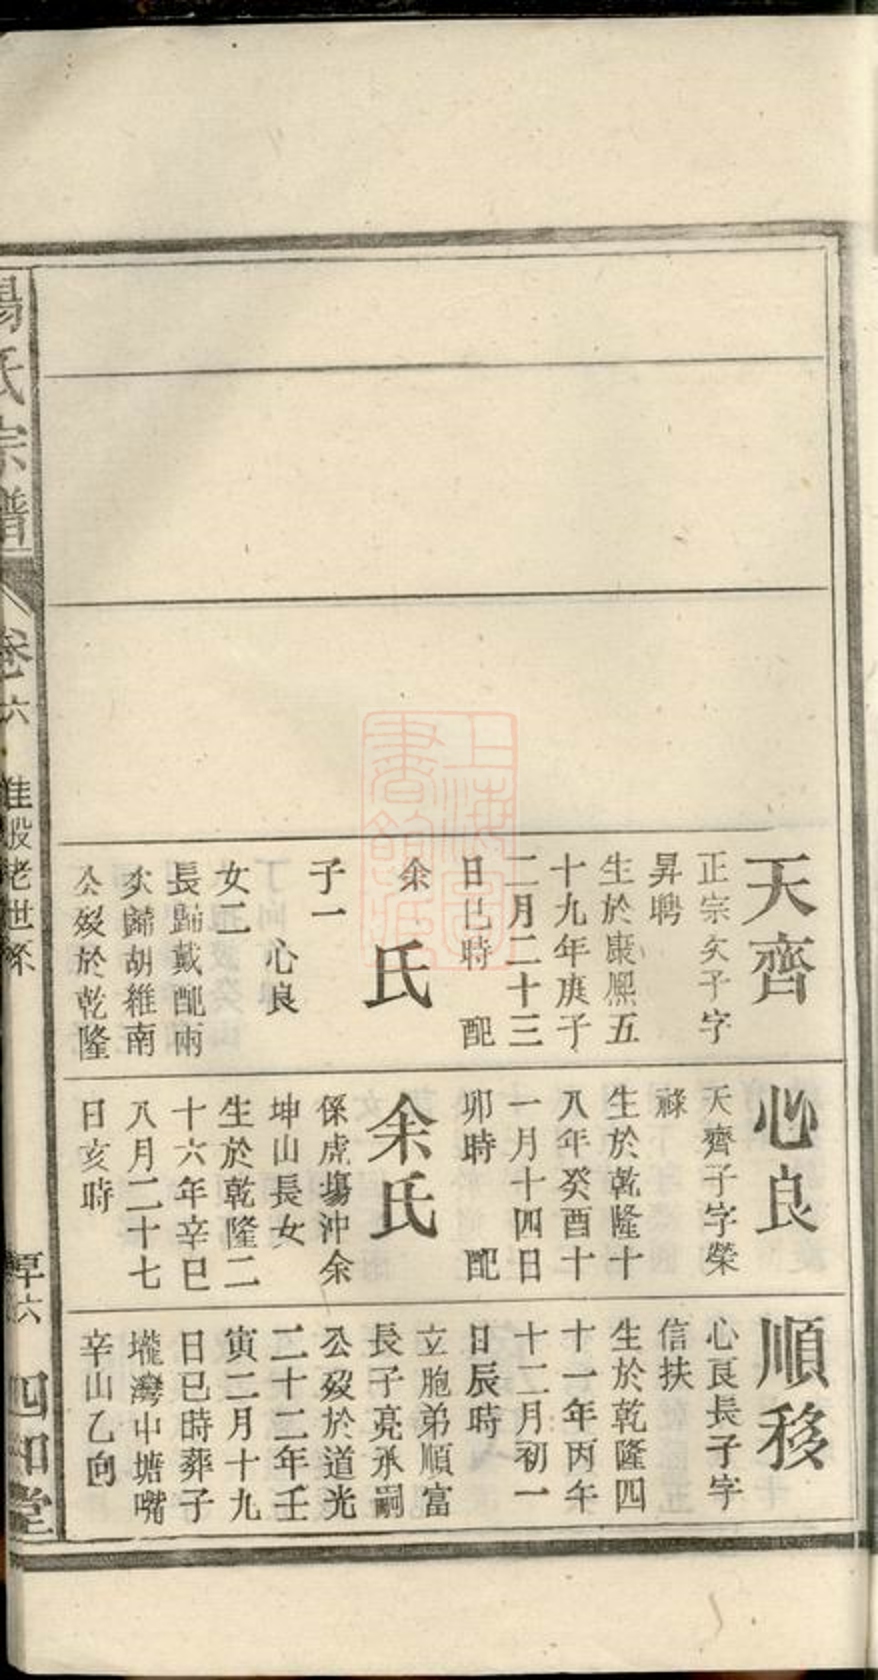 天齊
正宗次子字
昇聘
生於康熙五
十九年庚子
二月二十三
日巳時 配
余氏
子一
心良
女二
長歸戴配兩
次歸胡維南
公歿於乾隆
心良
天齊子字榮
祿
生於乾隆十
八年癸酉十
一月十四日
卯時 配
余氏
係虎塲沖余
坤山長女
生於乾隆二
十六年辛巳
八月二十七
日亥時
順移
心良長子字
信扶
生於乾隆四
十一年丙午
十二月初一
日辰時
立胞弟順富
長子亮承嗣
公歿於道光
二十二年壬
寅二月十九
日巳時葬子
壠灣中塘嘴
辛山乙向
氏宗譜
卷六
老世系
四知堂
上海圖書館藏